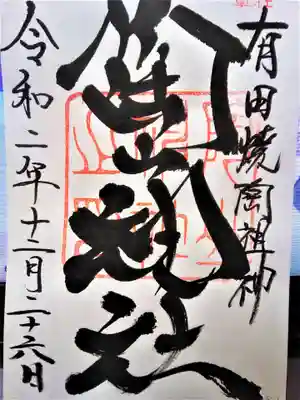 有田焼開祖神
陶山神社
令和二年十二月二十六日